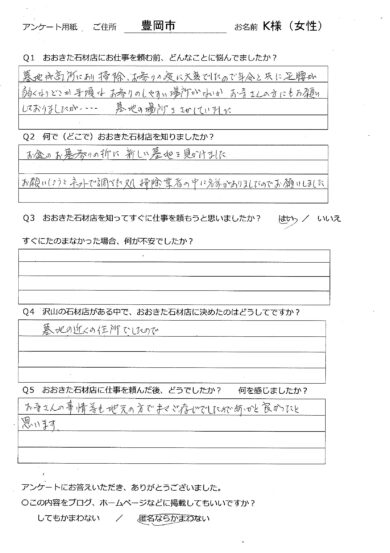 アンケート用紙　ご住所　豊岡市　お名前　K様（女性）
Q１　おおきた石材店にお仕事を頼む前、どんなことに悩んでましたか？
墓地が高所にあり掃除、お参りの度に大変でしたので年令と共に足腰が
弱くなりどこか平地のお参りのしやすい場所がないか お寺さんの方にもお願い
しておりましたが・・・・　墓地の場所をさがしていました
Q２　何で（どこで）おおきた石材店を知りましたか？
お盆のお墓参りの折に 新しい墓地を見かけました
お願いしようとネットで調べた処、掃除業者の中に名前がありましたのでお願いしました
Q３　おおきた石材店を知ってすぐに仕事を頼もうと思いましたか？　はい　／　いいえ
すぐにたのまなかった場合、何が不安でしたか？
Q４　沢山の石材店がある中で、おおきた石材店に決めたのはどうしてですか？
墓地の近くの住所でしたので
Q５　おおきた石材店に仕事を頼んだ後、どうでしたか？　何を感じましたか？
お寺さんの事情等も地元の方で
良かったと
思います
アンケートにお答えいただき、ありがとうございました。
○この内容をブログ、ホームページなどに掲載してもいいですか？
してもかまわない　／　匿名ならかまわない